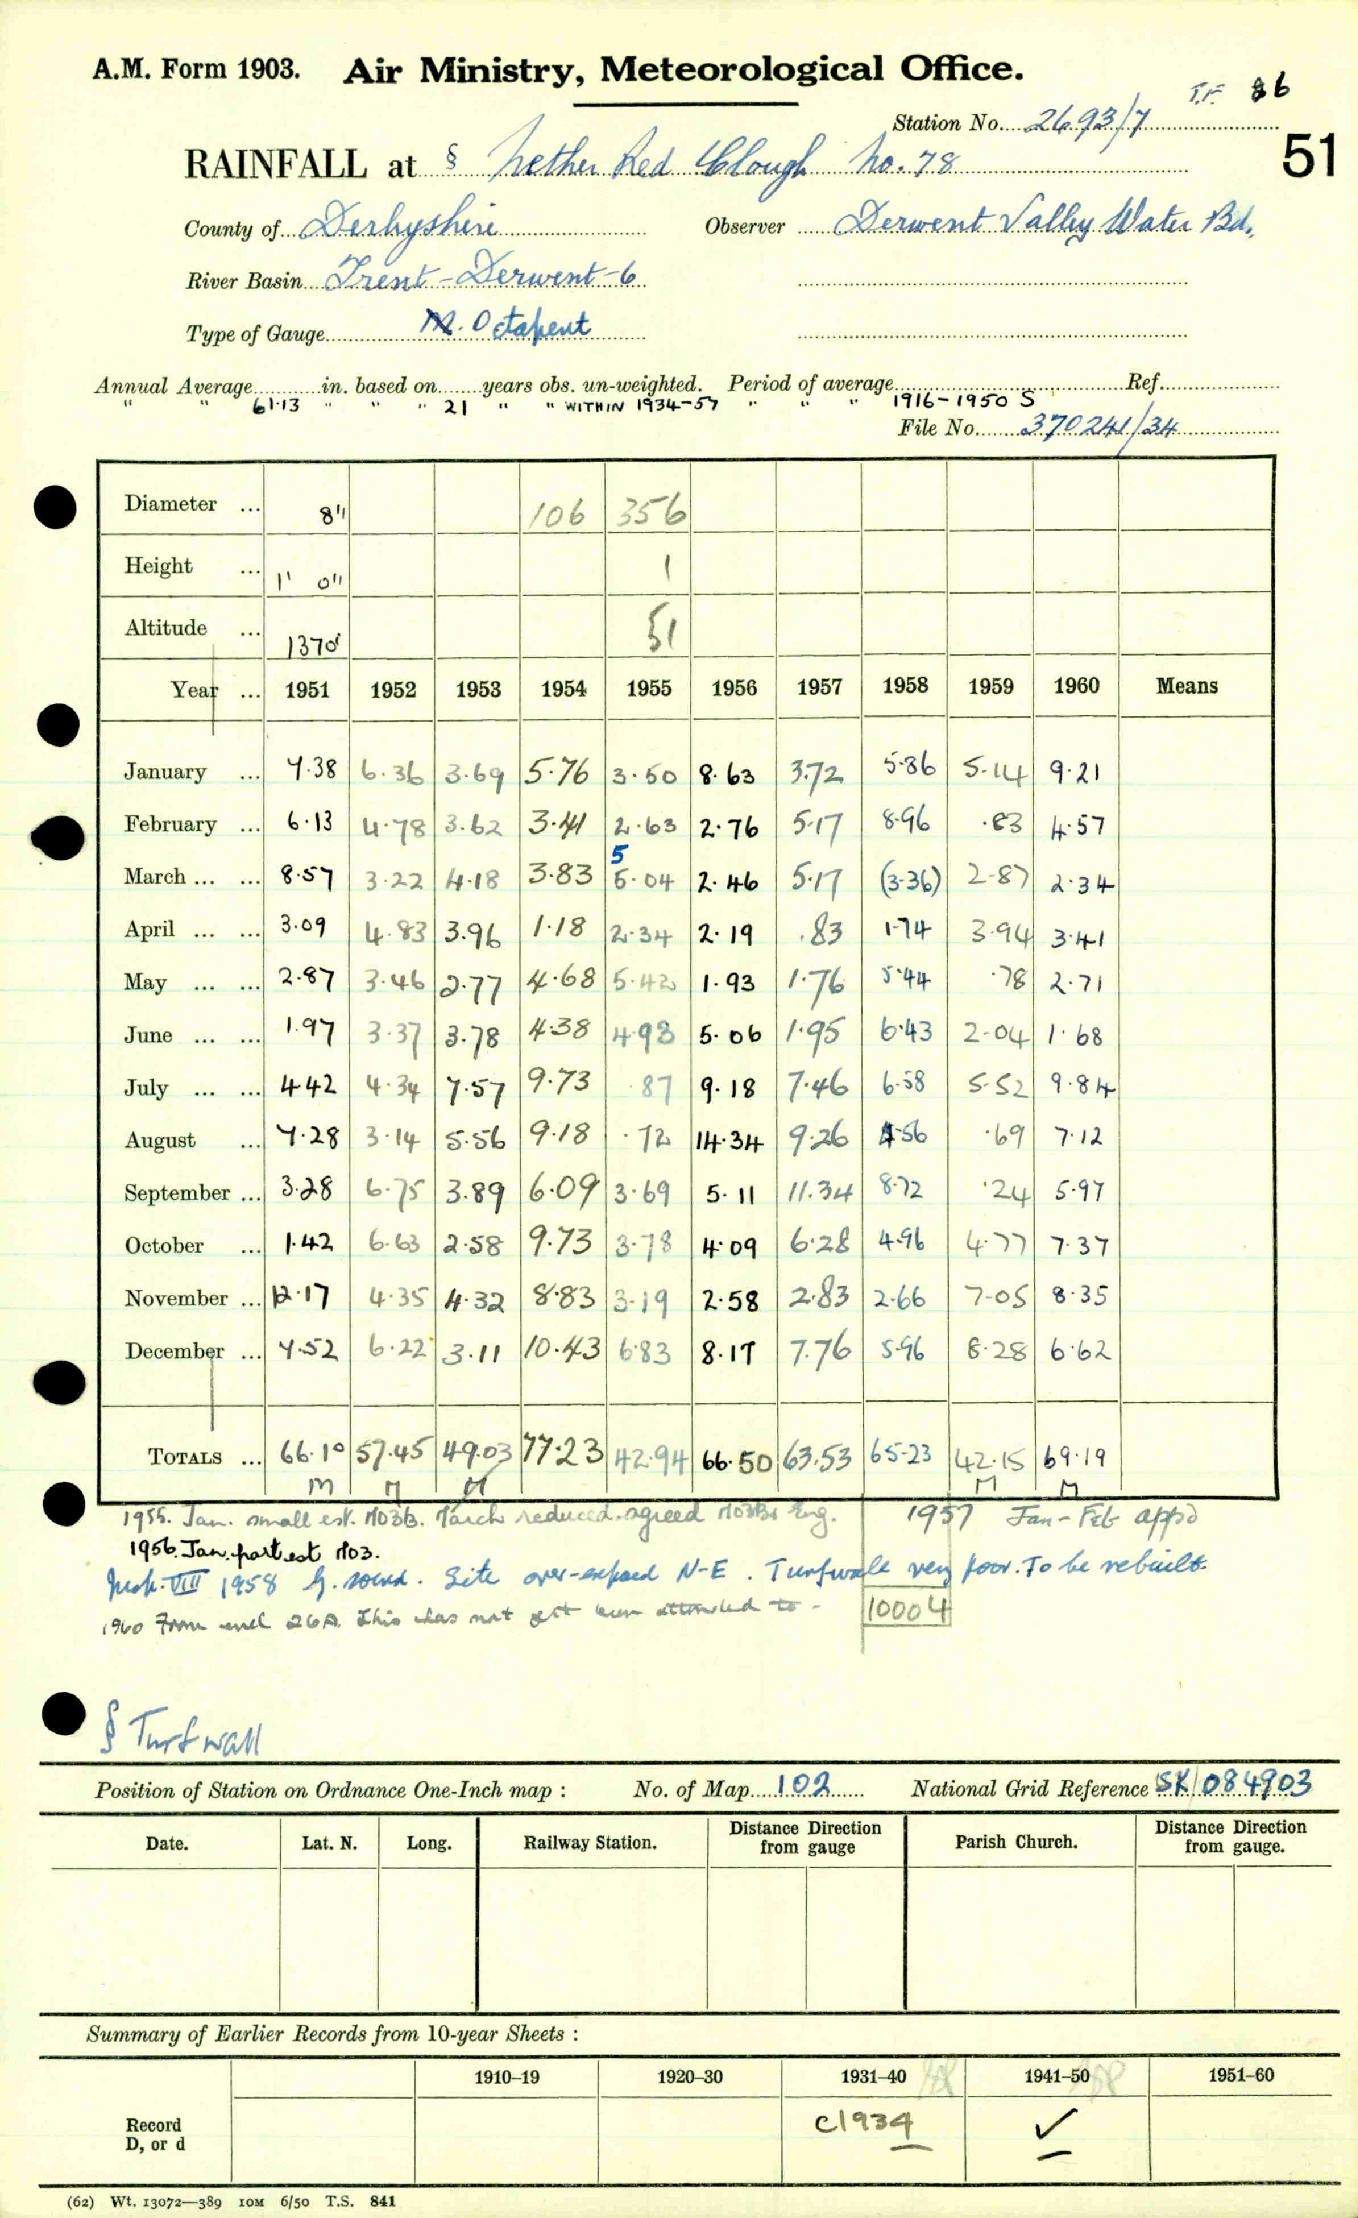 A.M. Form 1903. Air Ministry, Meteorological Office.
T.F. 86
Station No. 2693/7
51
RAINFALL at § Nether Red Clough No. 78
County of Derbyshire Observer Derwent Valley Water Bd.
River Basin Trent-Derwent-6
Type of Gauge M. Octapent
Annual Average in. based on years obs. un-weighted. Period of average Ref.
" " 61·13 " " " 21 " " WITHIN 1934-57 " " " 1916-1950 S
File No. 370241/34
Diameter ... 8" 106 356
Height ... 1' 0" 1
Altitude ... 1370' 51
Year ... 1951 1952 1953 1954 1955 1956 1957 1958 1959 1960 Means
January ... 7·38 6·36 3·69 5·76 3·50 8·63 3·72 5·86 5·14 9·21
February ... 6·13 4·78 3·62 3·41 2·63 2·76 5·17 8·96 ·83 4·57
5
March ... ... 8·57 3·22 4·18 3·83 5·04 2·46 5·17 (3·36) 2·87 2·34
April ... ... 3·09 4·83 3·96 1·18 2·34 2·19 ·83 1·74 3·94 3·41
May ... ... 2·87 3·46 2·77 4·68 5·42 1·93 1·76 5·44 ·78 2·71
June ... ... 1·97 3·37 3·78 4·38 4·93 5·06 1·95 6·43 2·04 1·68
July ... ... 4·42 4·34 7·57 9·73 ·87 9·18 7·46 6·58 5·52 9·84
August ... 7·28 3·14 5·56 9·18 ·72 14·34 9·26 4·56 ·69 7·12
September ... 3·28 6·75 3·89 6·09 3·69 5·11 11·34 8·72 ·24 5·97
October ... 1·42 6·63 2·58 9·73 3·78 4·09 6·28 4·96 4·77 7·37
November ... 12·17 4·35 4·32 8·83 3·19 2·58 2·83 2·66 7·05 8·35
December ... 7·52 6·22 3·11 10·43 6·83 8·17 7·76 5·96 8·28 6·62
TOTALS ... 66·10 57·45 49·03 77·23 42·94 66·50 63·53 65·23 42·15 69·19
M M M M M
1955. Jan. small est. MO3B. March reduced. agreed MO3B Eng. 1957 Jan-Feb appd
1956. Jan. part est MO3.
Insp. VIII 1958 Site over-exposed N-E. Turfwall very poor. To be rebuilt.
1960 This has not yet been attended to -
10004
§ Turf wall
Position of Station on Ordnance One-Inch map : No. of Map 102 National Grid Reference SK 084903
Date. Lat. N. Long. Railway Station. Distance from Direction gauge Parish Church. Distance from Direction gauge.
Summary of Earlier Records from 10-year Sheets :
1910–19 1920–30 1931–40 1941–50 1951–60
Record
D, or d c1934 ✓
(62) Wt. 13072—389 10M 6/50 T.S. 841